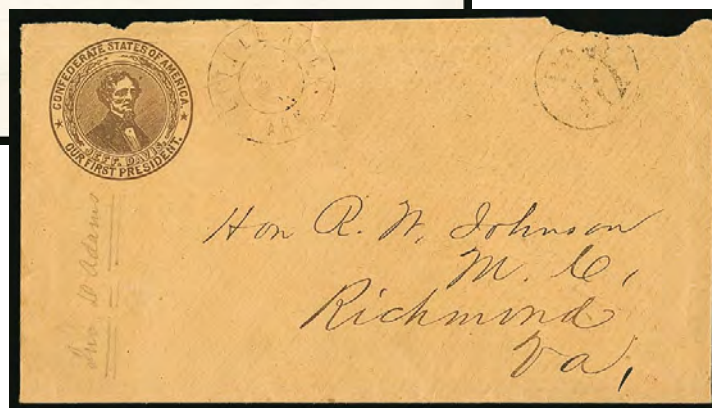 CONFEDERATE STATES OF AMERICA.
JEFF. DAVIS,
OUR FIRST PRESIDENT.
LITTLE ROCK
ARK
PAID
Jno D Adams
Hon R. W. Johnson
M. C,
Richmond
Va,